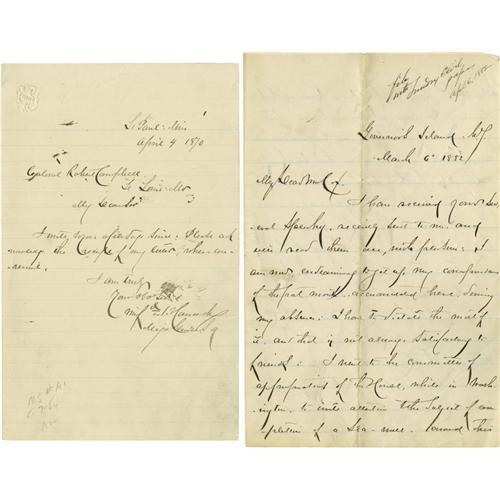 St Paul Min
April 4 1870
Colonel Robert Campbell
St Louis Mo
My Dear Sir
I wrote you a few days since. Please ack
nowledge the receipt of my letter, when con-
venient.
I am truly
Your
Winf S. Hancock
Maj Genl U.S.A
MS # A1
Governors Island N.Y.
March 6 1882
My Dear Mr Cox.
I have received your sev-
eral speeches, recently sent to me, and
will read them all, with pleasure. I
am now endeavoring to get up my correspondence
of the past month, accumulated here, during
my absence. I have to dictate the most of
it, and that is not always satisfactory to
friends. I went to the committee of
appropriations of the House, while in Wash-
ington, to invite attention to the subject of com-
pletion of a Sea-wall around this